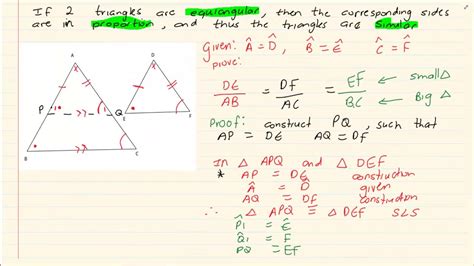 If 2 triangles are equiangular, then the corresponding sides
are in proportion, and thus the triangles are similar
Given: Â = D̂, B̂ = Ê Ĉ = F̂
prove:
DE/AB = DF/AC = EF/BC ← small Δ
← Big Δ
Proof: construct PQ, such that
AP = DE AQ = DF
In Δ APQ and Δ DEF
* AP = DE construction
Â = D̂ given
AQ = DF construction
∴ Δ APQ ≡ Δ DEF S∠S
P̂1 = Ê
Q̂1 = F
PQ = EF
A
D
P
1
1
Q
B
C